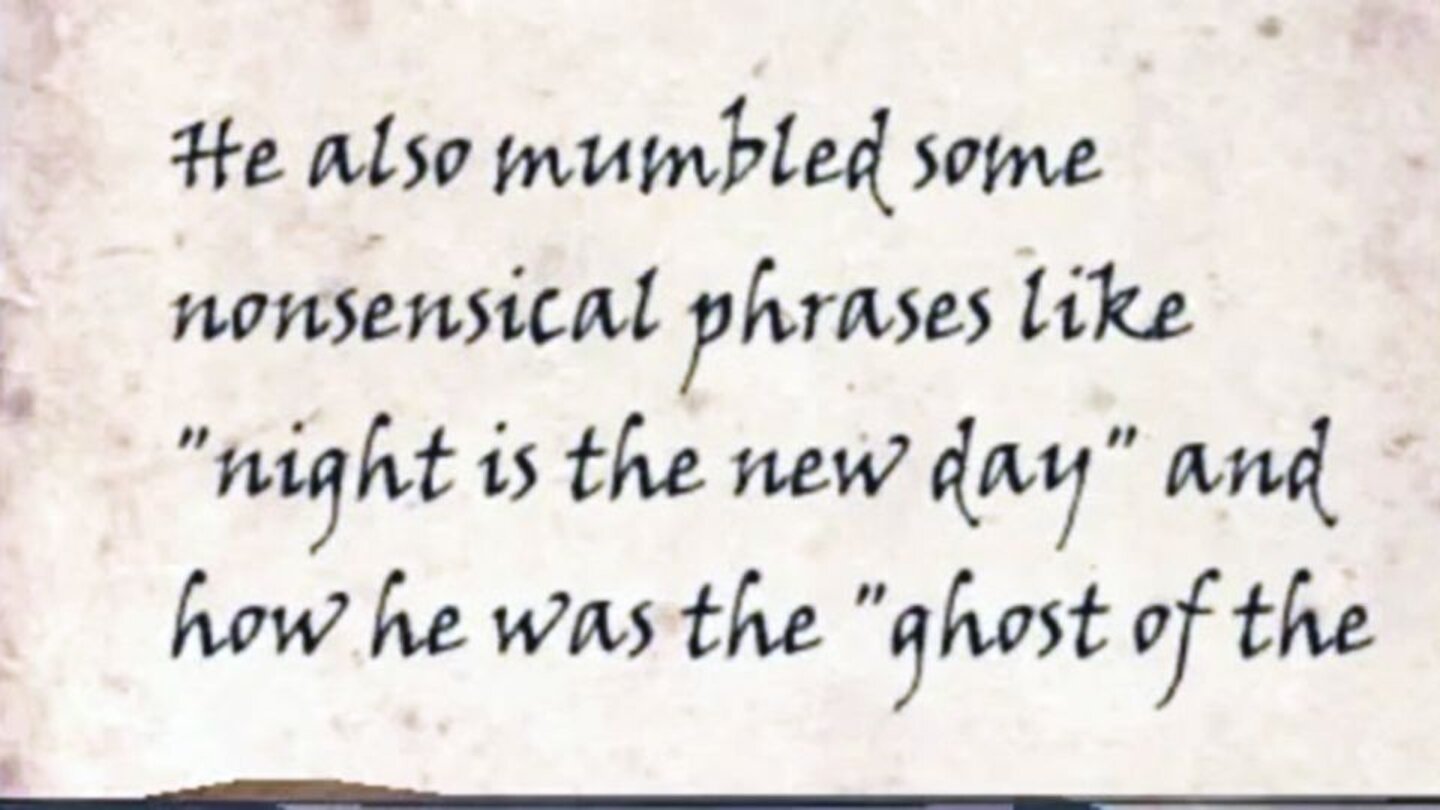 He also mumbled some
nonsensical phrases like
"night is the new day" and
how he was the "ghost of the